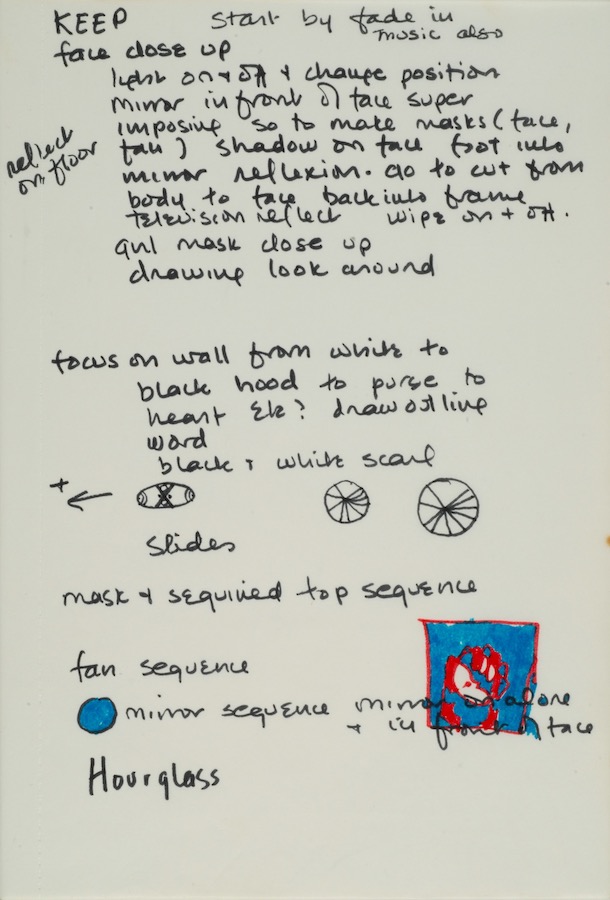 KEEP start by fade in
music also
face close up
light on + off + change position
mirror in front of face super
imposing so to make masks (face,
fan) shadow on face foot into
reflect
on floor
mirror reflexion. Go to cut from
body to face back into frame
television reflect wipe on + off.
girl mask close up
drawing look around
focus on wall from white to
black hood to purse to
heart Etc? draw outline
word
black + white scarf
+ ←
slides
mask + sequined top sequence
fan sequence
mirror sequence mirror on alone
+ in front of face
Hourglass